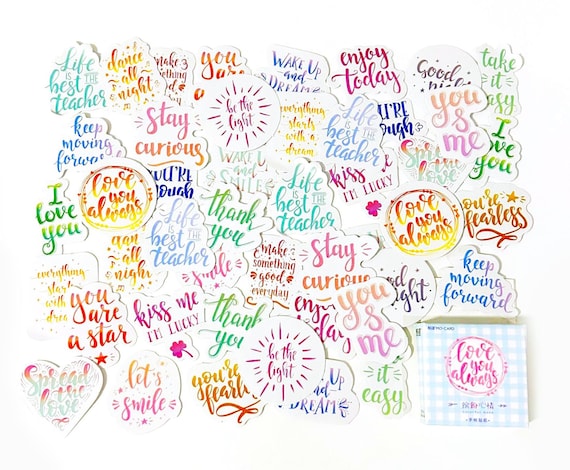 Life
IS THE
best
teacher
dance
all
night
make
something
good
you
are
WAKE UP
and
DREAMS
enjoy
today
Good
take
it
easy
keep
moving
forward
Stay
curious
be the
light
everything
starts
with a
dream
Life
IS THE
best
teacher
YOU'RE
enough
you
&
me
Spread
the
love
I
love
you
I
love
you
Love
you
always
YOU'RE
enough
WAKE UP
and
kiss me
I'M LUCKY
Life
IS THE
best
teacher
thank
you
Life
IS THE
best
teacher
Love
you
always
you're
fearless
everything
starts
with a
dream
all
night
smile
make
something
good
everyday
Stay
curious
keep
moving
forward
you
are
a
star
kiss me
I'M LUCKY
thank
you
be the
light
enjoy
today
you
&
me
Spread
the
love
let's
smile
you're
fearless
WAKE UP
and
DREAMS
it
easy
Love
you
always